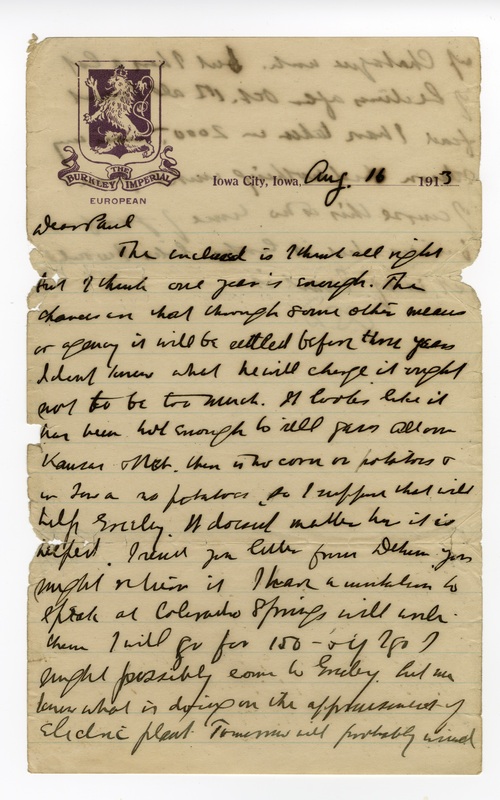 THE
BURKLEY IMPERIAL
EUROPEAN
Iowa City, Iowa, Aug. 16 1913
Dear Paul
The inclosed is I think all right
but I think one year is enough. The
chances are that through some other means
or agency it will be settled before three years
I dont know what he will charge it ought
not to be too much. It looks like it
has been hot enough to kill grass all over
Kansas & Neb. there is no corn or potatoes &
in Iowa no potatoes, so I suppose that will
help Greeley. It doesnt matter how it is
helped. I return you letter from
might return it I have an invitation to
speak at Colorado Springs will write
them I will go for 150 - & if I go I
might possibly come to Greeley. Let me
know what is doing on the appraisement of
Electric plant. Tomorrow will probably wind